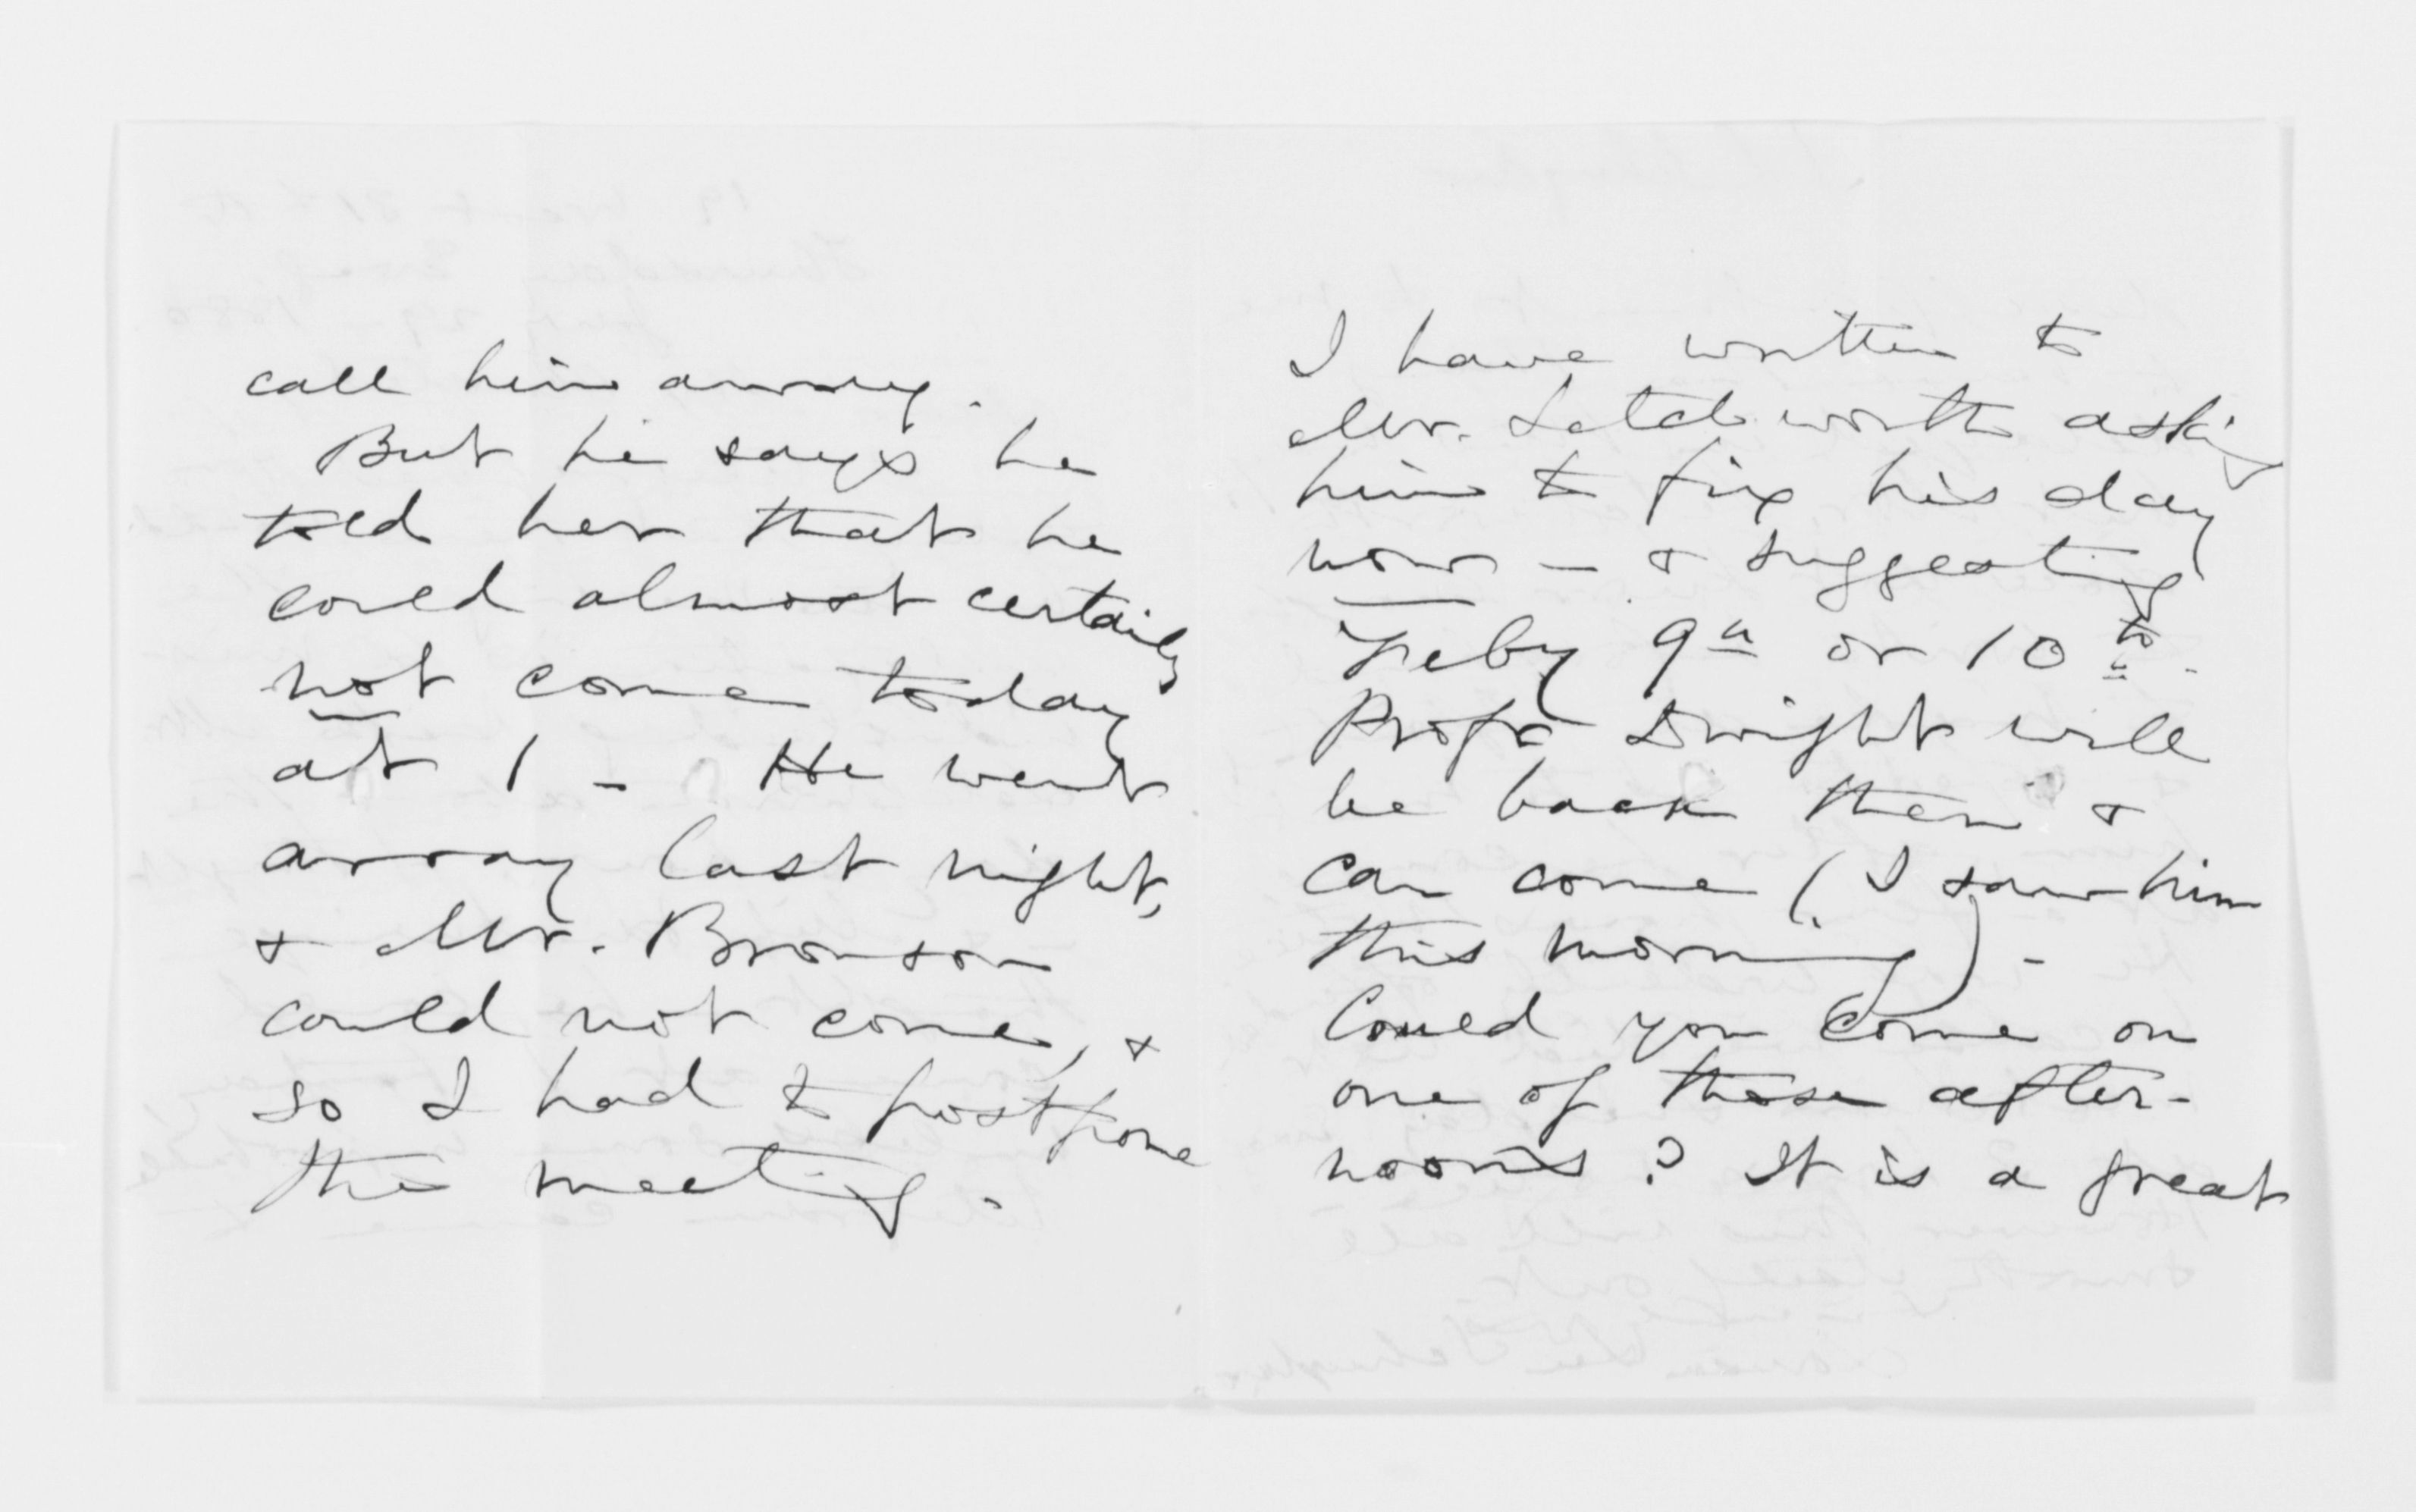 call him away.
But he says he
told her that he
could almost certainly
not come today
at 1 - He went
away last night,
& Mr. Bronson
could not come, &
so I had to postpone
the meeting.
I have written to
Mr. Letchworth asking
him to fix his day
now - & suggesting
Feby 9th or 10th.
Profr Dwight will
be back then &
can come (I saw him
this morning) -
Could you come on
one of those after-
noons? It is a great